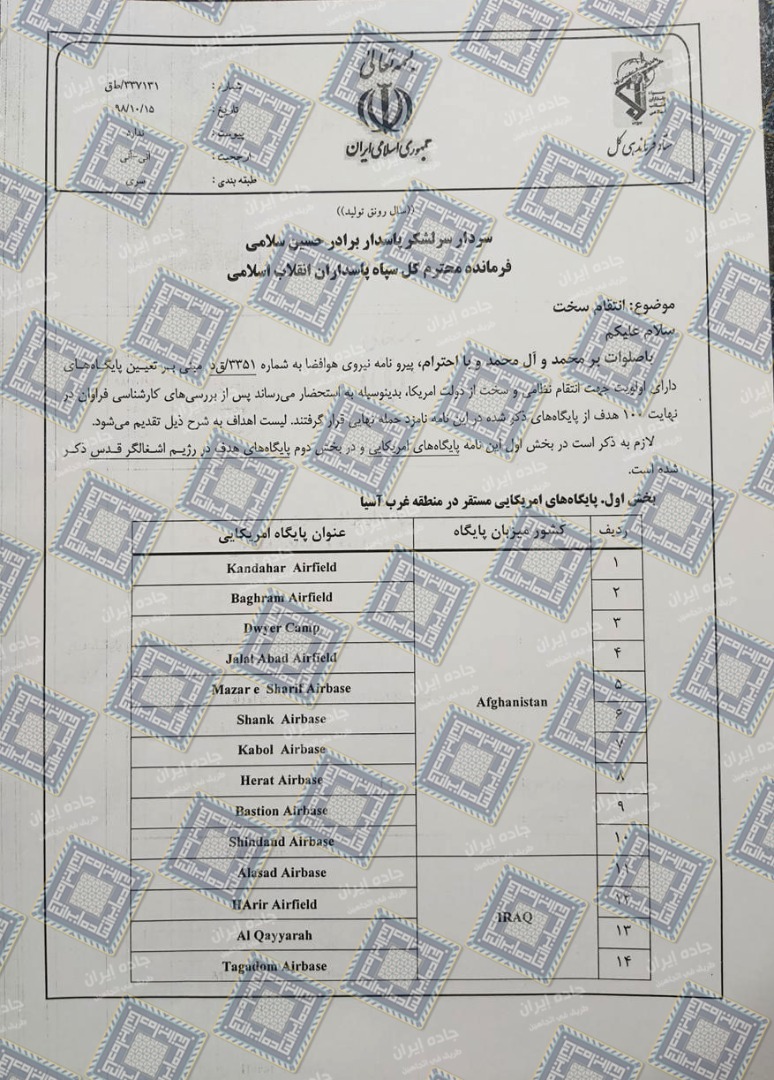 بسمه تعالی
جمهوری اسلامی ایران
ستاد فرماندهی کل
شماره: ۳۳۷۱۳۱/طق
تاریخ: ۹۸/۱۰/۱۵
پیوست: ندارد
ارجحیت: آنی-آنی
طبقه بندی: سری
((سال رونق تولید))
سردار سرلشکر پاسدار برادر حسین سلامی
فرمانده محترم کل سپاه پاسداران انقلاب اسلامی
موضوع: انتقام سخت
سلام علیکم
باصلوات بر محمد و آل محمد و با احترام، پیرو نامه نیروی هوافضا به شماره ۳۳۵۱/ق‌د مبنی بر تعیین پایگاه‌های
دارای اولویت جهت انتقام نظامی و سخت از دولت امریکا، بدینوسیله به استحضار می‌رساند پس از بررسی‌های کارشناسی فراوان در
نهایت ۱۰۰ هدف از پایگاه‌های ذکر شده در این نامه نامزد حمله نهایی قرار گرفتند. لیست اهداف به شرح ذیل تقدیم می‌شود.
لازم به ذکر است در بخش اول این نامه پایگاه‌های امریکایی و در بخش دوم پایگاه‌های هدف در رژیم اشغالگر قدس ذکر
شده است.
بخش اول. پایگاه‌های امریکایی مستقر در منطقه غرب آسیا
ردیف کشور میزبان پایگاه عنوان پایگاه امریکایی
۱ Kandahar Airfield
۲ Baghram Airfield
۳ Dwyer Camp
۴ Jalal Abad Airfield
۵ Mazar e Sharif Airbase
Afghanistan
۶ Shank Airbase
۷ Kabol Airbase
۸ Herat Airbase
۹ Bastion Airbase
۱۰ Shindand Airbase
۱۱ Alasad Airbase
۱۲ HArir Airfield
IRAQ
۱۳ Al Qayyarah
۱۴ Tagadom Airbase
جاده ایران